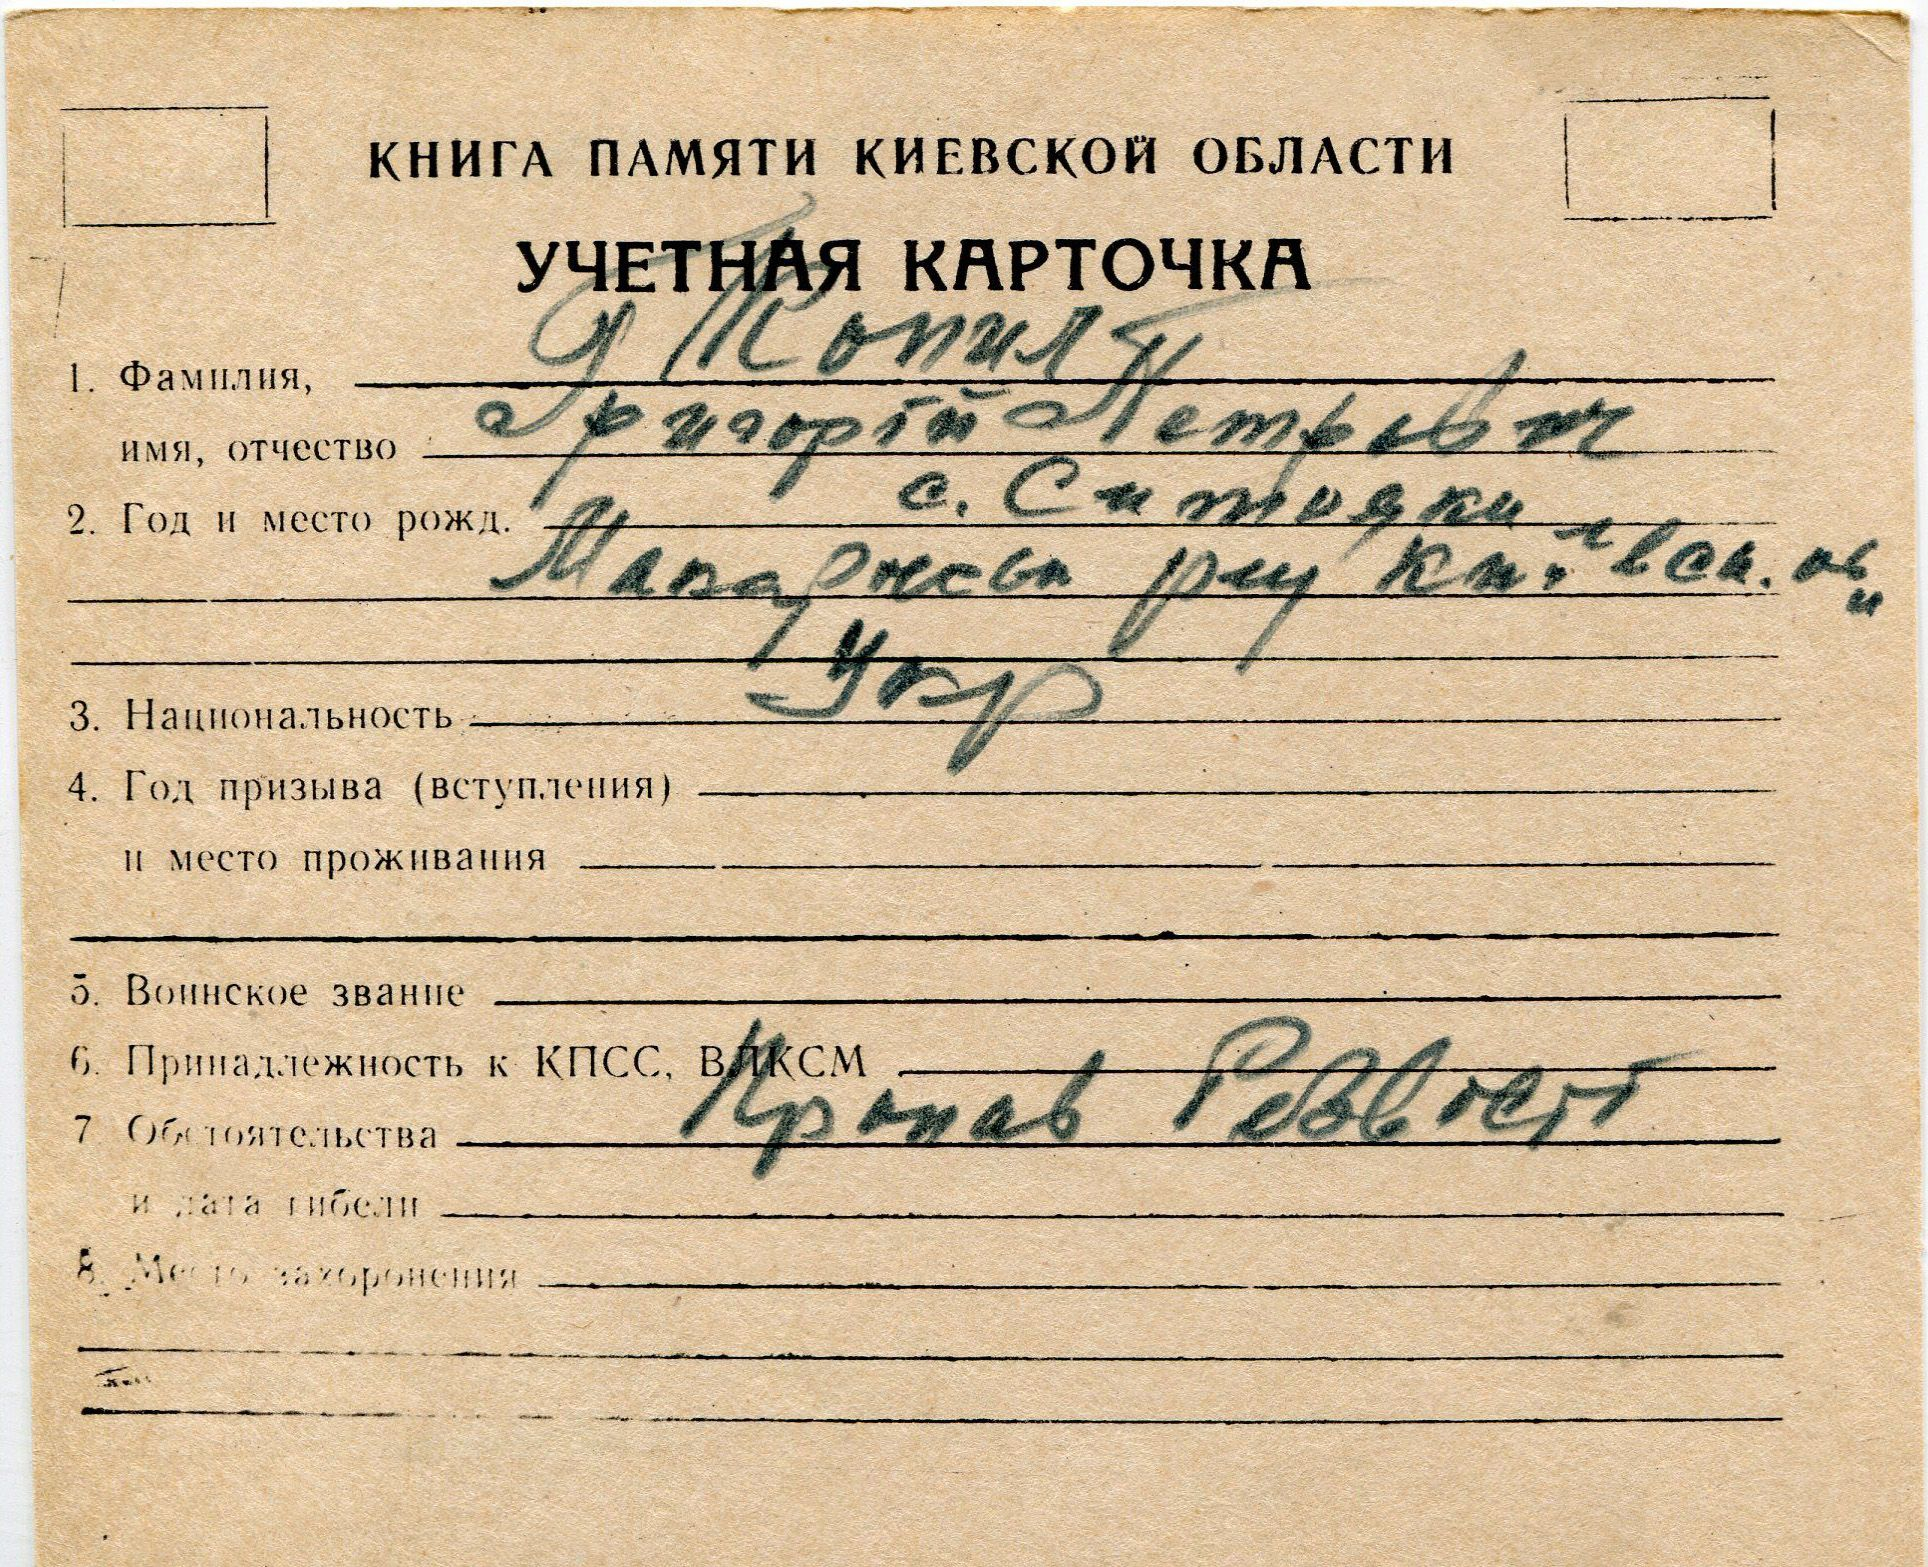 КНИГА ПАМЯТИ КИЕВСКОЙ ОБЛАСТИ
УЧЕТНАЯ КАРТОЧКА
1. Фамилия, Копил
имя, отчество Григорій Петрович
2. Год и место рожд. с. Ситняки
Макарівськ р-ну
3. Национальность Укр
4. Год призыва (вступления)
и место проживания
5. Воинское звание
6. Принадлежность к КПСС, ВЛКСМ
7. Обстоятельства Пропав
и дата гибели
8. Место захоронения